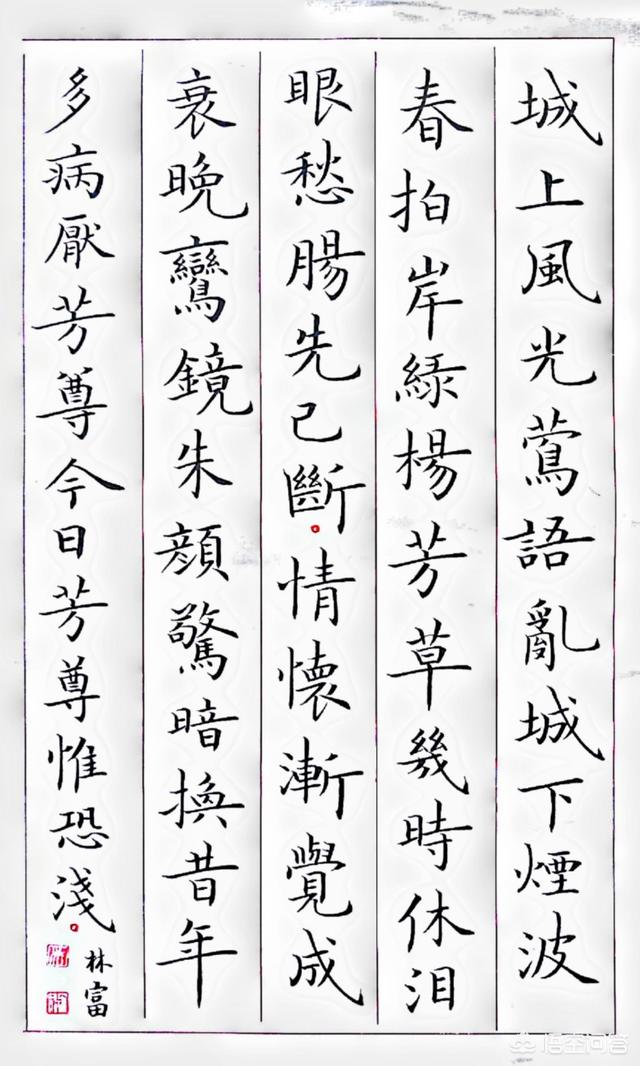 城上風光鶯語亂城下煙波
春拍岸緑楊芳草幾時休泪
眼愁腸先已斷。情懷漸覺成
衰晚鸞鏡朱顔驚暗換昔年
多病厭芳尊今日芳尊惟恐淺。
林富
悟空问答